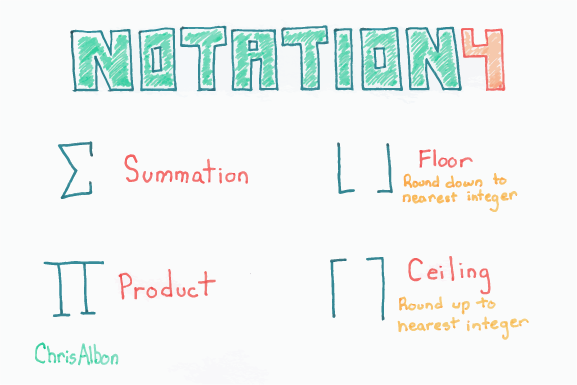 NOTATION4
Σ Summation
⌊ ⌋ Floor
Round down to
nearest integer
∏ Product
⌈ ⌉ Ceiling
Round up to
nearest integer
ChrisAlbon